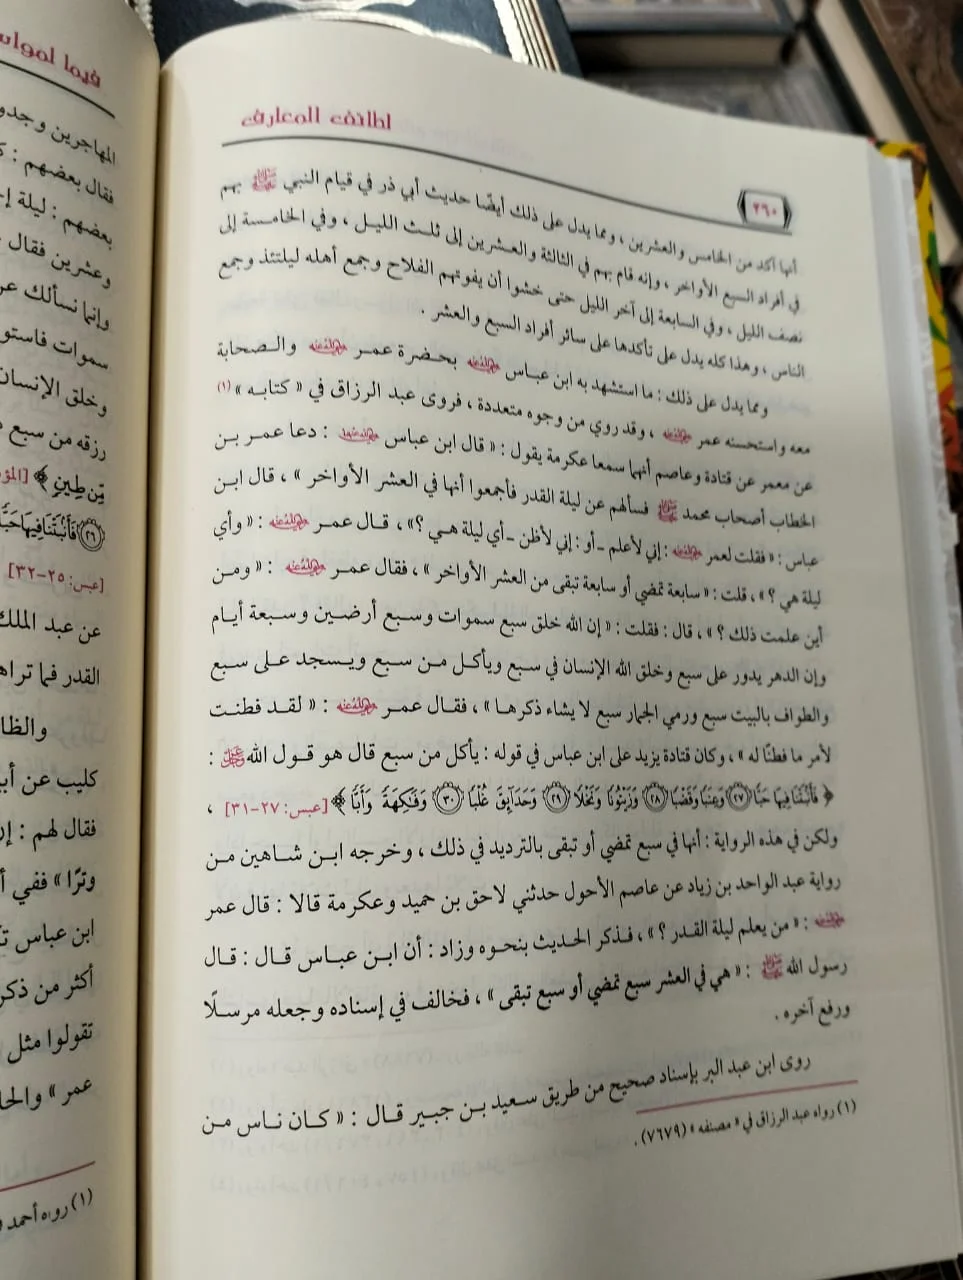 لطائف المعارف
٢٦٠
أنها آكد من الخامس والعشرين ، ومما يدل على ذلك أيضًا حديث أبي ذر في قيام النبي ﷺ بهم
في أفراد السبع الأواخر ، وإنه قام بهم في الثالثة والعشرين إلى ثلث الليل ، وفي الخامسة إلى
نصف الليل ، وفي السابعة إلى آخر الليل حتى خشوا أن يفوتهم الفلاح وجمع أهله ليلتئذ وجمع
الناس ، وهذا كله يدل على تأكدها على سائر أفراد السبع والعشر .
ومما يدل على ذلك : ما استشهد به ابن عباس رضي الله عنه بحضرة عمر رضي الله عنه والصحابة
معه واستحسنه عمر رضي الله عنه ، وقد روي من وجوه متعددة ، فروى عبد الرزاق في « كتابه » (١)
عن معمر عن قتادة وعاصم أنهما سمعا عكرمة يقول : « قال ابن عباس رضي الله عنهما : دعا عمر بن
الخطاب أصحاب محمد ﷺ فسألهم عن ليلة القدر فأجمعوا أنها في العشر الأواخر » ، قال ابن
عباس : « فقلت لعمر رضي الله عنه : إني لأعلم – أو : إني لأظن – أي ليلة هي ؟» ، قال عمر رضي الله عنه : « وأي
ليلة هي ؟ » ، قلت : « سابعة تمضي أو سابعة تبقى من العشر الأواخر » ، فقال عمر رضي الله عنه : « ومن
أين علمت ذلك ؟ » ، قال : فقلت : « إن الله خلق سبع سموات وسبع أرضين وسبعة أيام
وإن الدهر يدور على سبع وخلق الله الإنسان في سبع ويأكل من سبع ويسجد على سبع
والطواف بالبيت سبع ورمي الجمار سبع لا يشاء ذكرها » ، فقال عمر رضي الله عنه : « لقد فطنت
لأمر ما فطنّا له » ، وكان قتادة يزيد على ابن عباس في قوله : يأكل من سبع قال هو قول الله عز وجل :
﴿ فَأَنْبَتْنَا فِيهَا حَبًّا (٢٧) وَعِنَبًا وَقَضْبًا (٢٨) وَزَيْتُونًا وَنَخْلًا (٢٩) وَحَدَائِقَ غُلْبًا (٣٠) وَفَاكِهَةً وَأَبًّا ﴾ [عبس: ٢٧-٣١] ،
ولكن في هذه الرواية : أنها في سبع تمضي أو تبقى بالترديد في ذلك ، وخرجه ابن شاهين من
رواية عبد الواحد بن زياد عن عاصم الأحول حدثني لاحق بن حميد وعكرمة قالا : قال عمر
رضي الله عنه : « من يعلم ليلة القدر ؟ » ، فذكر الحديث بنحوه وزاد : أن ابن عباس قال : قال
رسول الله ﷺ : « هي في العشر سبع تمضي أو سبع تبقى » ، فخالف في إسناده وجعله مرسلًا
ورفع آخره .
روى ابن عبد البر بإسناد صحيح من طريق سعيد بن جبير قال : « كان ناس من
(١) رواه عبد الرزاق في « مصنفه » (٧٦٧٩) .
المهاجرين وجدو
فقال بعضهم :
بعضهم : ليلة
وعشرين فقال
وإنما نسألك
سموات فاستو
وخلق الإنسان
رزقه من سبع
مِّن طِينٍ ﴾
(٢٦) فَأَنْبَتْنَا فِيهَا حَبًّا
[عبس: ٢٥-٣٢]
عن عبد الملك
القدر فما تراه
والظا
كليب عن أبي
فقال لهم :
وترًا » ففي
ابن عباس
أكثر من ذكر
تقولوا مثل
عمر » والحا
(١) رواه أحمد